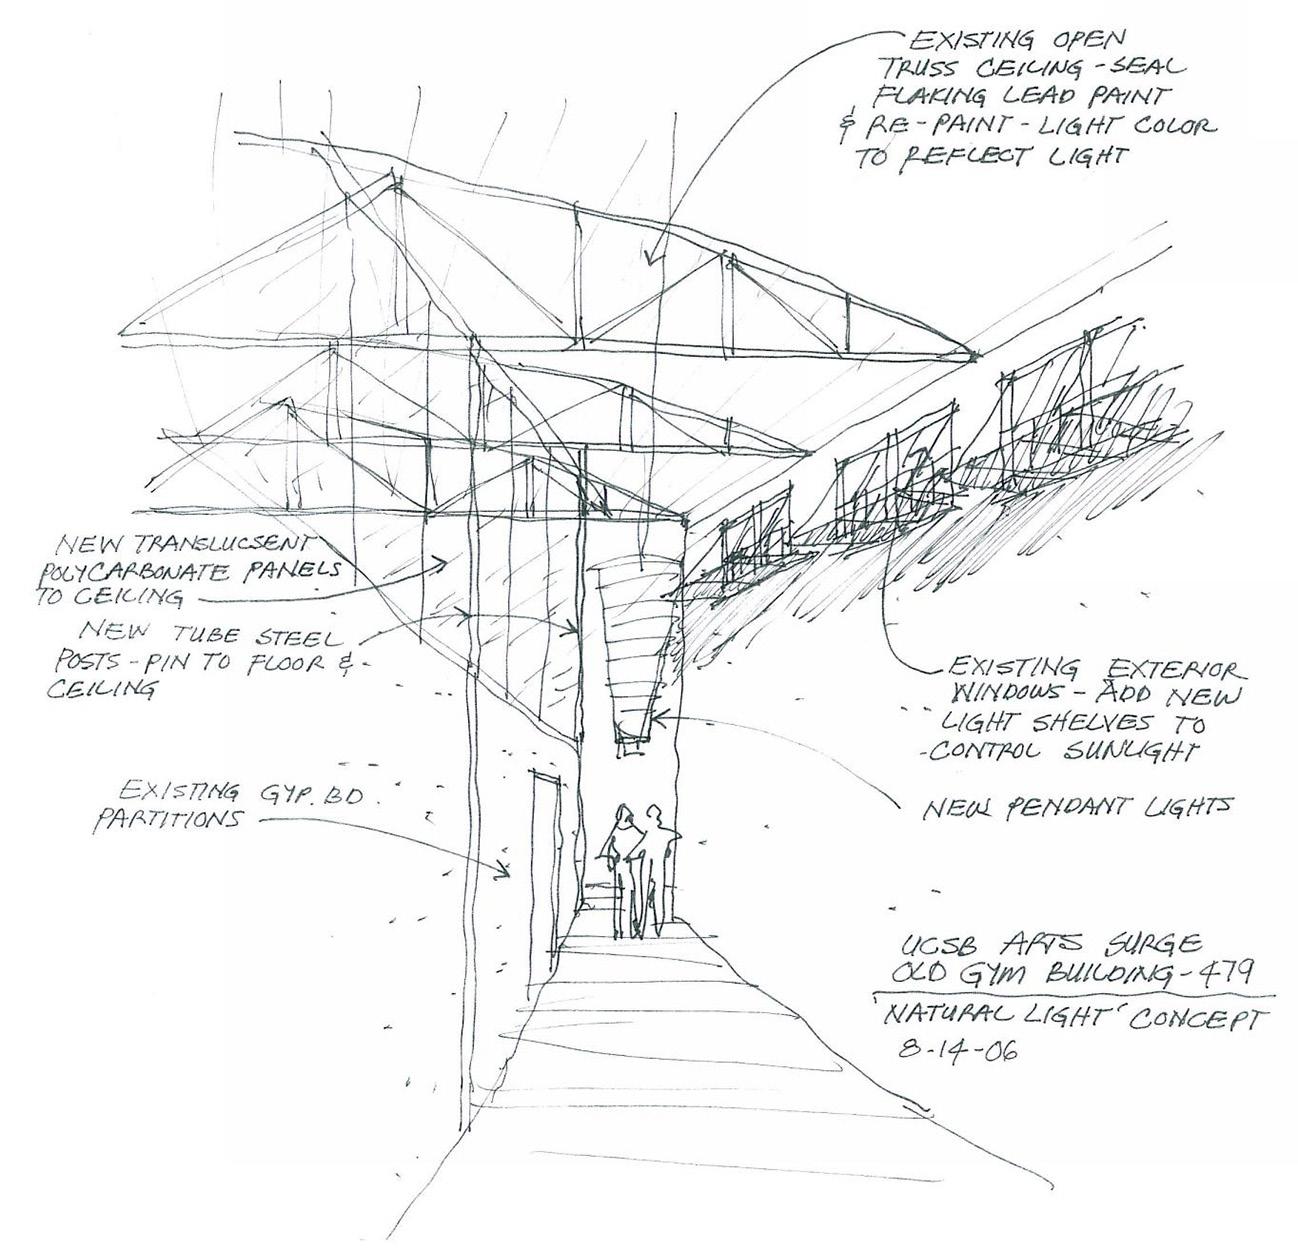 EXISTING OPEN
TRUSS CEILING - SEAL
FLAKING LEAD PAINT
& RE-PAINT - LIGHT COLOR
TO REFLECT LIGHT
NEW TRANSLUCSENT
POLYCARBONATE PANELS
TO CEILING
NEW TUBE STEEL
POSTS - PIN TO FLOOR &
CEILING
EXISTING EXTERIOR
WINDOWS - ADD NEW
LIGHT SHELVES TO
CONTROL SUNLIGHT
EXISTING GYP. BD.
PARTITIONS
NEW PENDANT LIGHTS
UCSB ARTS SURGE
OLD GYM BUILDING - 479
'NATURAL LIGHT' CONCEPT
8-14-06